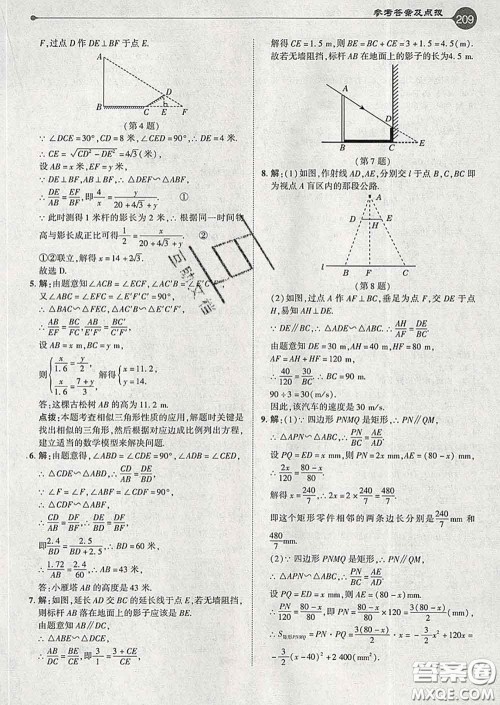 参考答案及点拨
209
F,过点 D 作 DE⊥BF 于点 E.
A
B
C
D
E
F
(第 4 题)
∵ ∠DCE=30°,CD=8 米,∠CED=90°,∴ DE=4 米.
∴ CE=√(CD²-DE²)=4√3(米).
设 AB=x 米,EF=y 米.
∵ DE⊥BF,AB⊥BF,∴ △DEF∽△ABF.
∴ DE/AB=EF/BF,即 4/x=y/(20+4√3+y). ①
∵ 此时测得 1 米杆的影长为 2 米,∴ 根据同一时间物
高与影长成正比可得 1/2=x/(20+4√3+y). ②
①②联立,解得 x=14+2√3.
故选 D.
5. 解:由题意知∠ACB=∠ECF,∠AC'B'=∠E'C'F',
又∠ABC=∠EFC=∠AB'C'=∠E'F'C'=90°,
∴ △BAC∽△FEC,△B'AC'∽△F'E'C'.
∴ AB/EF=BC/FC,AB/E'F'=B'C'/F'C'.
设 AB=x m,BC=y m.
则 { x/1.6=y/2, x/1.6=(7+y)/3. 解得 { x=11.2, y=14.
答:这棵古松树 AB 的高为 11.2 m.
点拨:本题考查相似三角形性质的应用,解题时关键是
找出相似的三角形,然后根据对应边成比例列出方程,
建立适当的数学模型来解决问题.
6. 解:由题意得,∠ABD=∠CDE=90°,∠ADB=∠CED,
∴ △CDE∽△ABD,∴ CD/AB=DE/BD.
∵ ∠F=∠F,∴ △CDF∽△ABF,
∴ CD/AB=DF/BF,∴ DE/BD=DF/BF,
即 2.4/BD=2.4+2.5/BD+2.4+2.5
∴ 1.72/AB=2.4/60,∴ AB=43 米.
答:小雁塔 AB 的高度是 43 米.
7. 解:如图,延长 AD 交 BC 的延长线于点 E,若无墙阻挡,
则标杆 AB 落在地面上的影子应该是 BE.
由题意知 AB∥DC,
∴ △ABE∽△DCE.
∴ AB/DC=BE/CE,即 3/1=(3+CE)/CE,
解得 CE=1.5 m,则 BE=BC+CE=3+1.5=4.5(m).
故若无墙阻挡,标杆 AB 在地面上的影子的长为 4.5 m.
A
D
B
C
E
(第 7 题)
8. 解:(1)如图,作射线 AD,AE,分别交 l 于点 B,C,BC 即
为视点 A 盲区内的那段公路.
A
D
H
E
l
B
F
C
(第 8 题)
(2)如图,过点 A 作 AF⊥BC,垂足为点 F,交 DE 于点
H,易知 AH⊥DE.
∵ DE∥BC,∴ △ADE∽△ABC,∴ AH/AF=DE/BC.
由题意知 DE=30 m,AH=40 m,HF=80 m,
∴ 40/120=30/BC,∴ BC=90 m.
90÷3=30(m/s).
因此,该汽车的速度是 30 m/s.
9. 解:(1)∵ 四边形 PNMQ 为矩形,∴ PN∥QM,
∴ △APN∽△ABC.∴ PN/BC=AE/AD.
设 PQ=ED=x mm,则 PN=2x mm,AE=(80-x)mm,
∵ PN/BC=AE/AD,∴ 2x/120=(80-x)/80.
解得 x=240/7,∴ 2x=2×240/7=480/7.
∴ 这个矩形零件相邻的两条边长分别为 240/7 mm 和
480/7 mm.
(2)∵ 四边形 PNMQ 是矩形,∴ PN∥QM.
∴ △APN∽△ABC,∴ PN/BC=AE/AD.
设 PQ=ED=x mm,则 AE=(80-x) mm,
∴ PN/120=(80-x)/80,即 PN=3(80-x)/2 mm,
∴ S矩形PNMQ=PN·PQ=x·3(80-x)/2=-3/2x²+120x=
-3/2(x-40)²+2 400(mm²).
答案圈
MXQE.COM